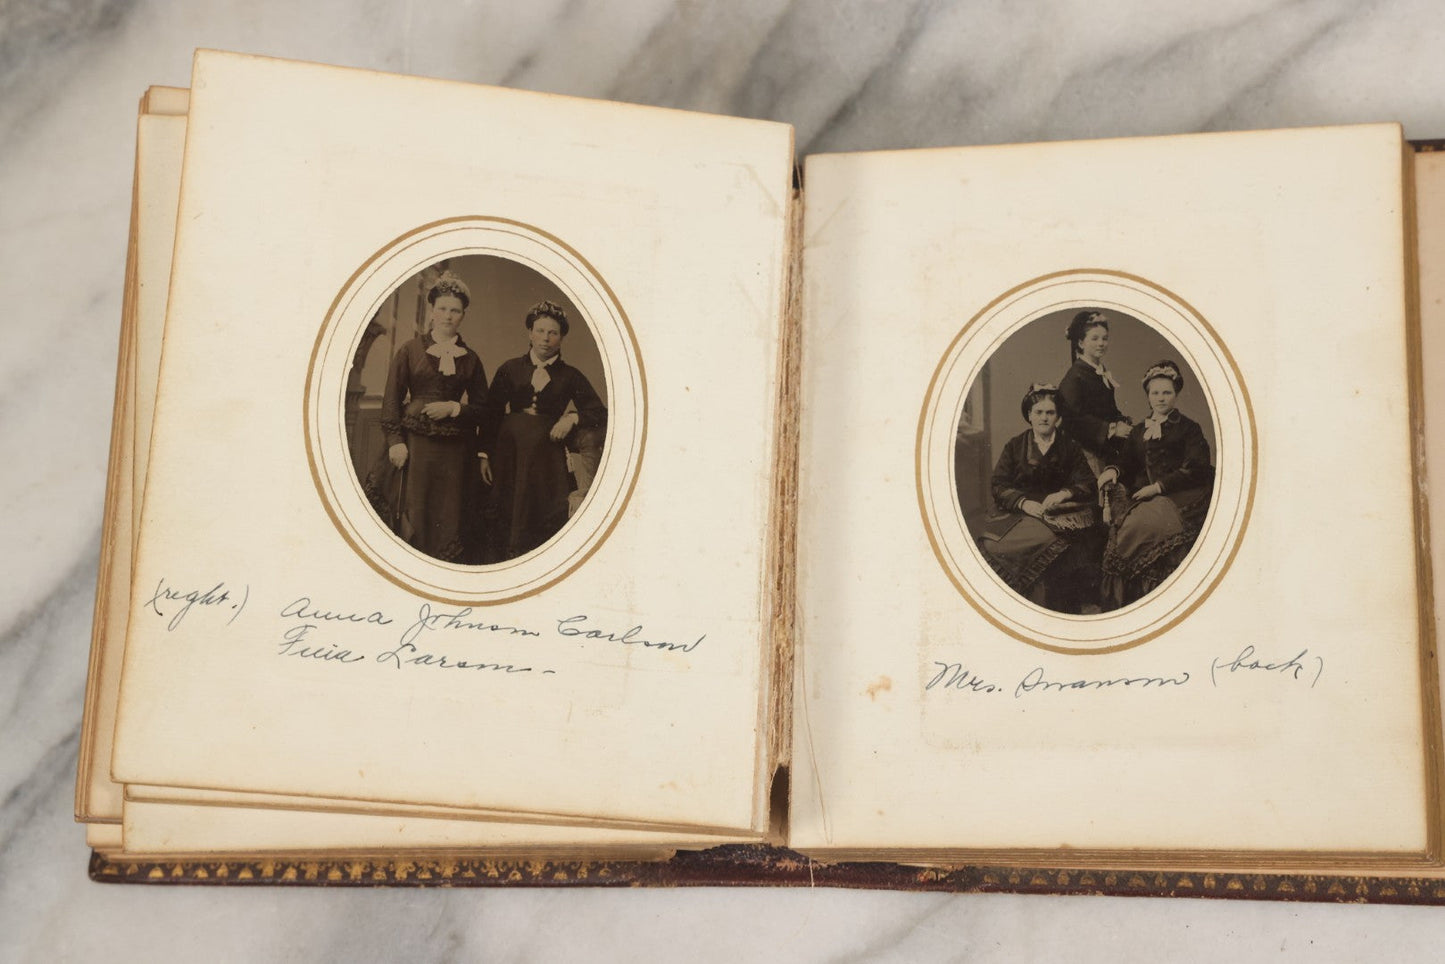 (right.) Anna Johnson Carlson
Larson –
Mrs. Swanson (back)